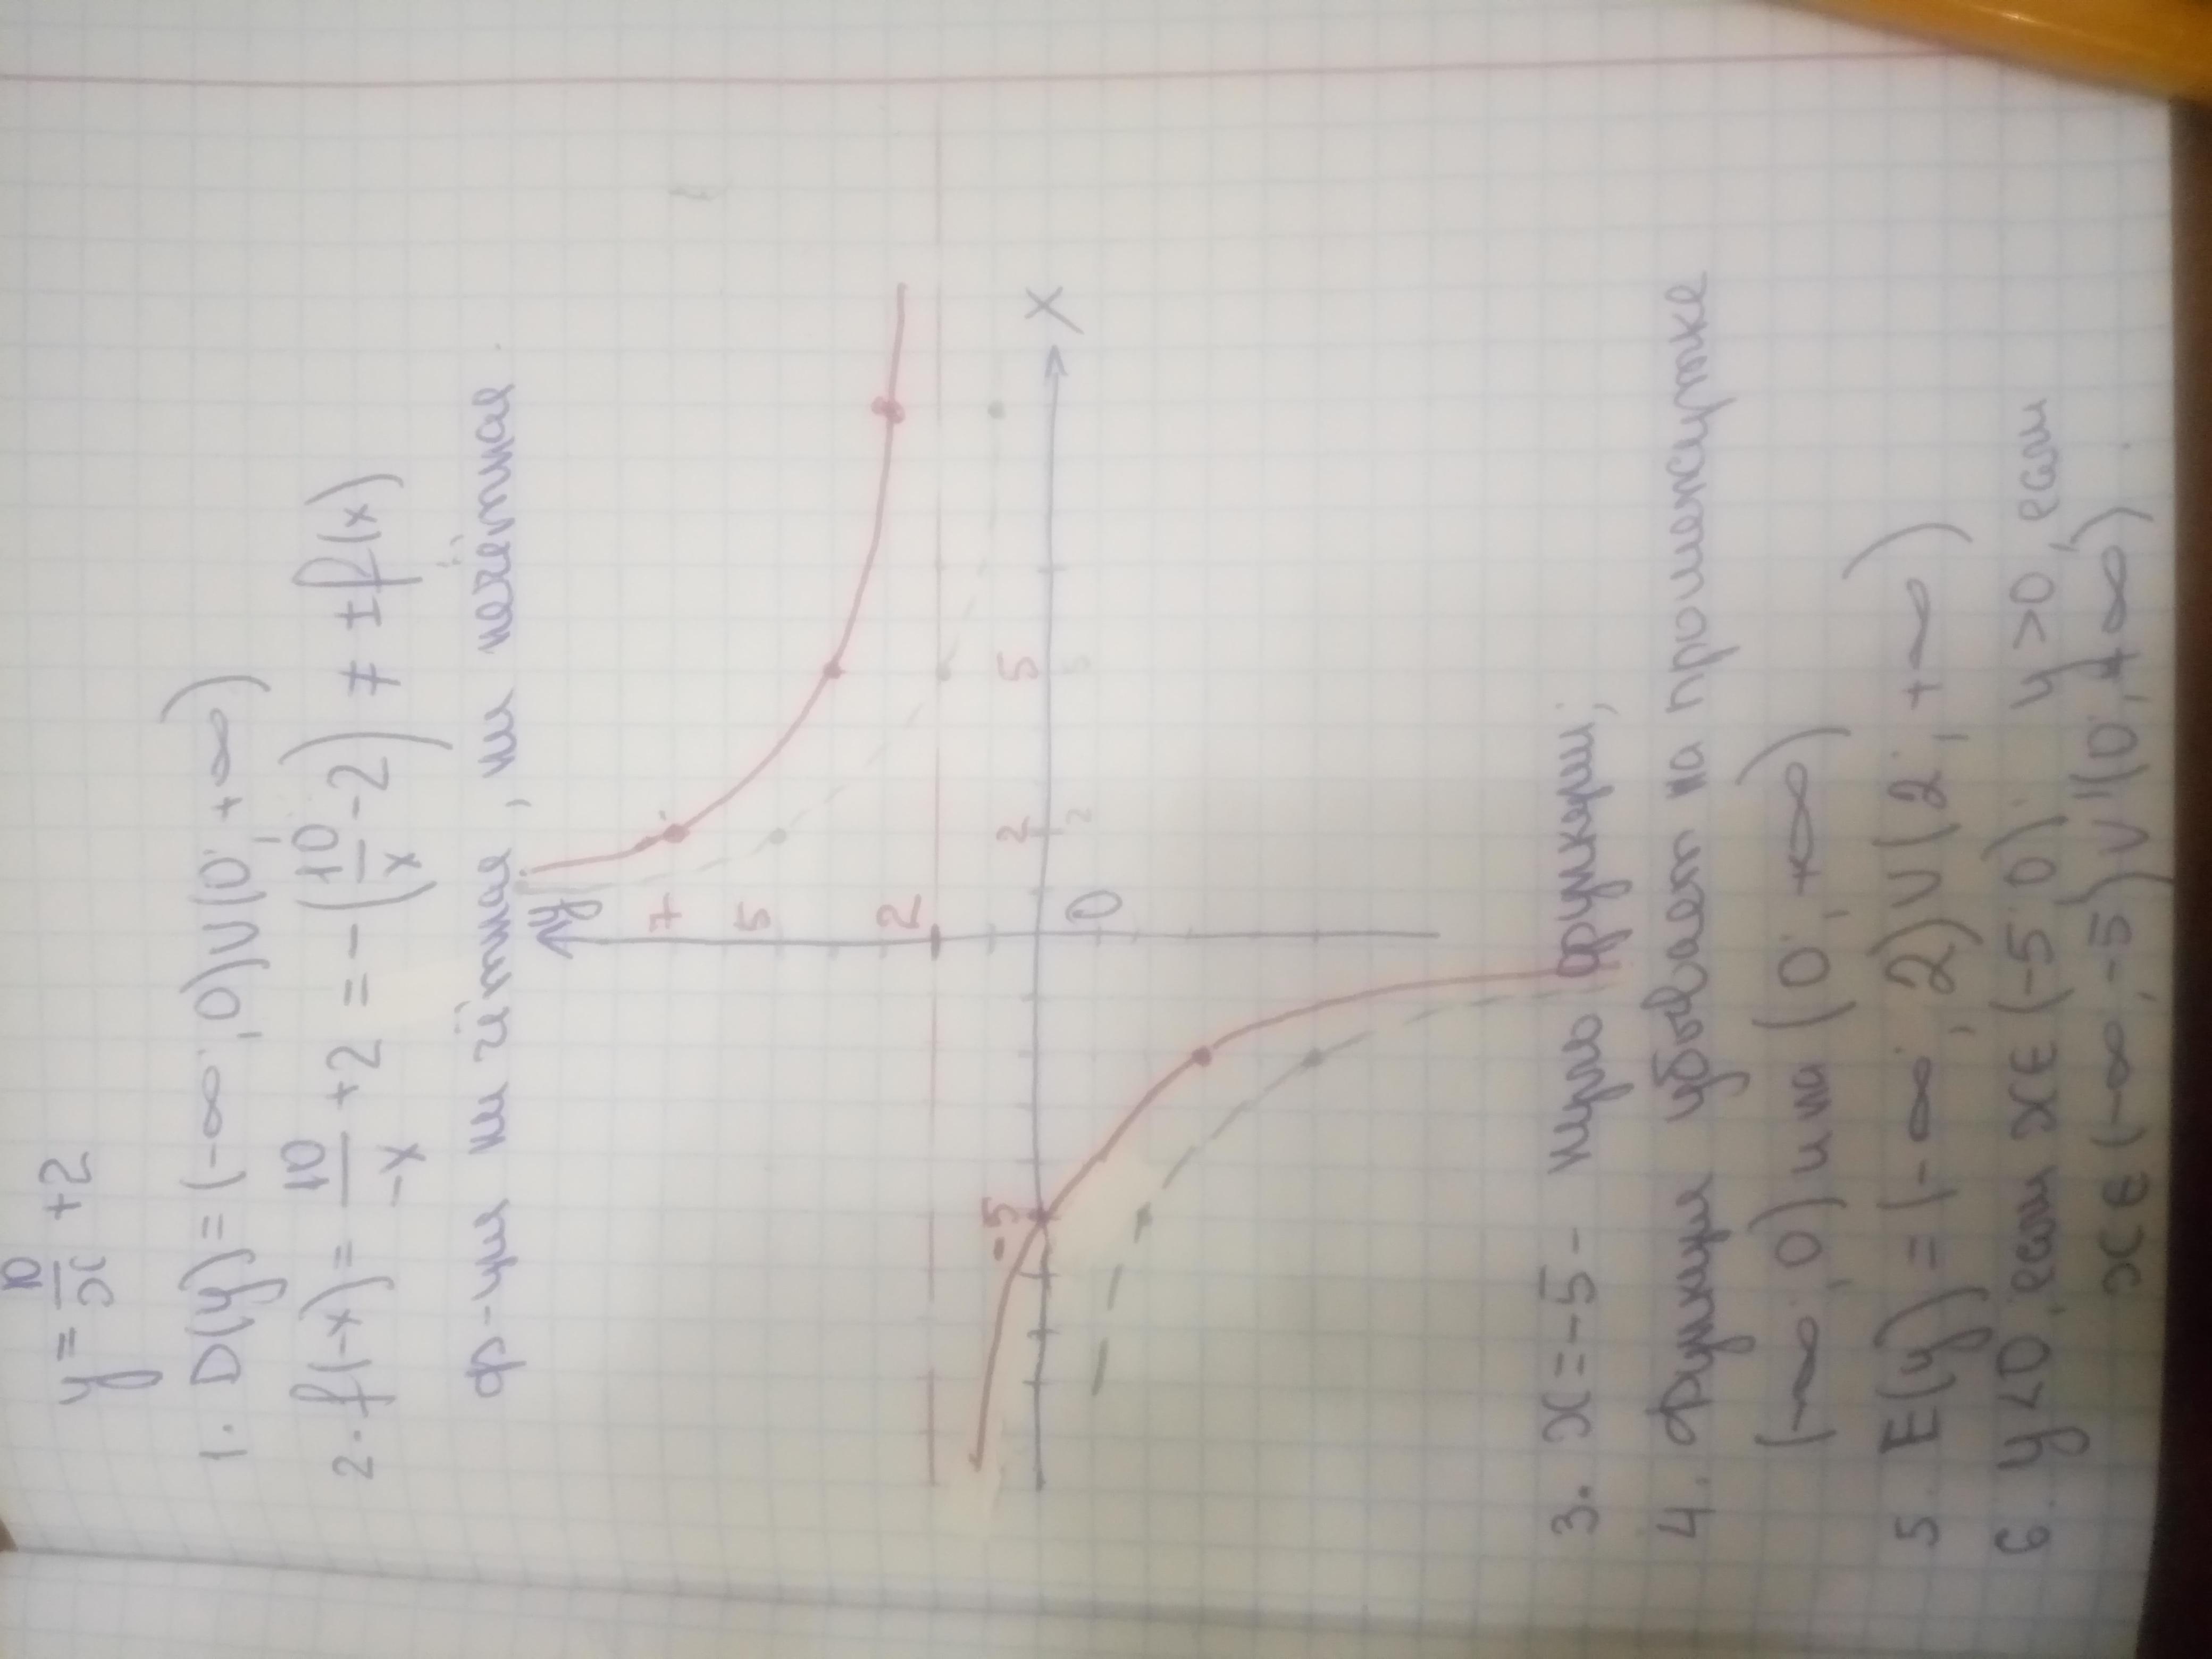 y = 10/x + 2
1. D(y) = (-∞; 0) ∪ (0; +∞)
2. f(-x) = 10/-x + 2 = -(10/x - 2) ≠ ±f(x)
ф-ция ни чётная, ни нечётная.
y
7
5
2
-5
0
2
5
2
5
X
3. x = -5 - нуль функции;
4. Функция убывает на промежутке
(-∞; 0) и на (0; +∞)
5. E(y) = (-∞; 2) ∪ (2; +∞)
6. y < 0, если x ∈ (-5; 0) y > 0, если
x ∈ (-∞; -5) ∪ (0; +∞).